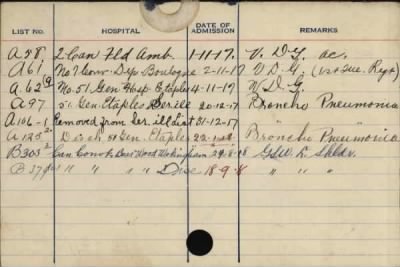 LIST NO. HOSPITAL DATE OF ADMISSION REMARKS
A 58. 2 Can Fld Amb. 1-11-17. V.D.G. ac.
A 61 No 7 Conv Dep Boulogne 2-11-17 V.D.G.
A 62 No. 51 Gen Hosp Etaples 4-11-17 V.D.G.
A 97 51 Gen Etaples Ser ill 20-12-17 Broncho Pneumonia
A 104-1 Removed from Ser. ill List 31-12-17 " "
A 135 Disch 51 Gen. Etaples Broncho Pneumonia
B 305 Can Convt Bear Wood Wokingham 29-8-18 GSW L Shldr.
B 37 " " " " Disc 18-9-8 " " "